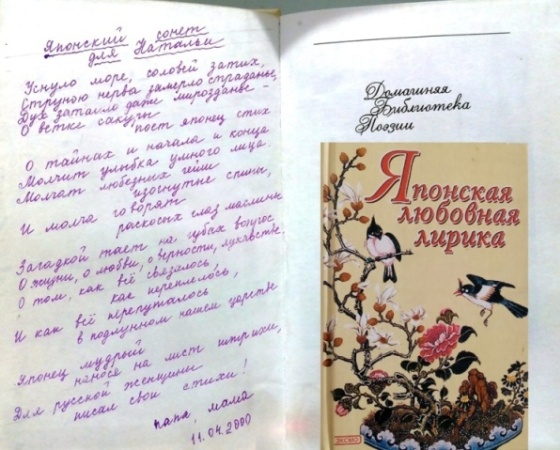 Японский сонет
для Натальи
Уснуло море, соловей затих,
Струною нерва замерло страданье,
Дух затаило даже мирозданье –
О ветке сакуры
поёт японец стих
О тайнах и начала и конца
Молчит улыбка умного лица.
Молчат любезных гейш
изогнутые спины,
И молча говорят
раскосых глаз маслины.
Загадкой тает на губах вопрос
О жизни, о любви, о верности,
О том, как всё связалось,
как переплелось,
И как всё перепуталось
в подлунном нашем царстве
Японец мудрый
нанося на лист штрихи,
Для русской женщины
писал свои стихи!
папа, мама
11.04.2000
Домашняя
Библиотека
Поэзии
Японская
любовная
лирика
ЭКСМО